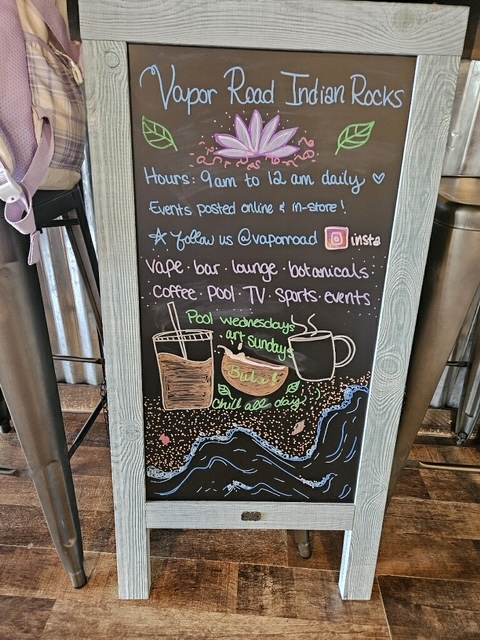 Vapor Road Indian Rocks
Hours: 9am to 12 am daily
Events posted online & in-store!
follow us @vaporroad insta
vape · bar · lounge · botanicals ·
coffee · pool · TV · sports · events
Pool wednesdays
art sundays
Bula
chill all day :)